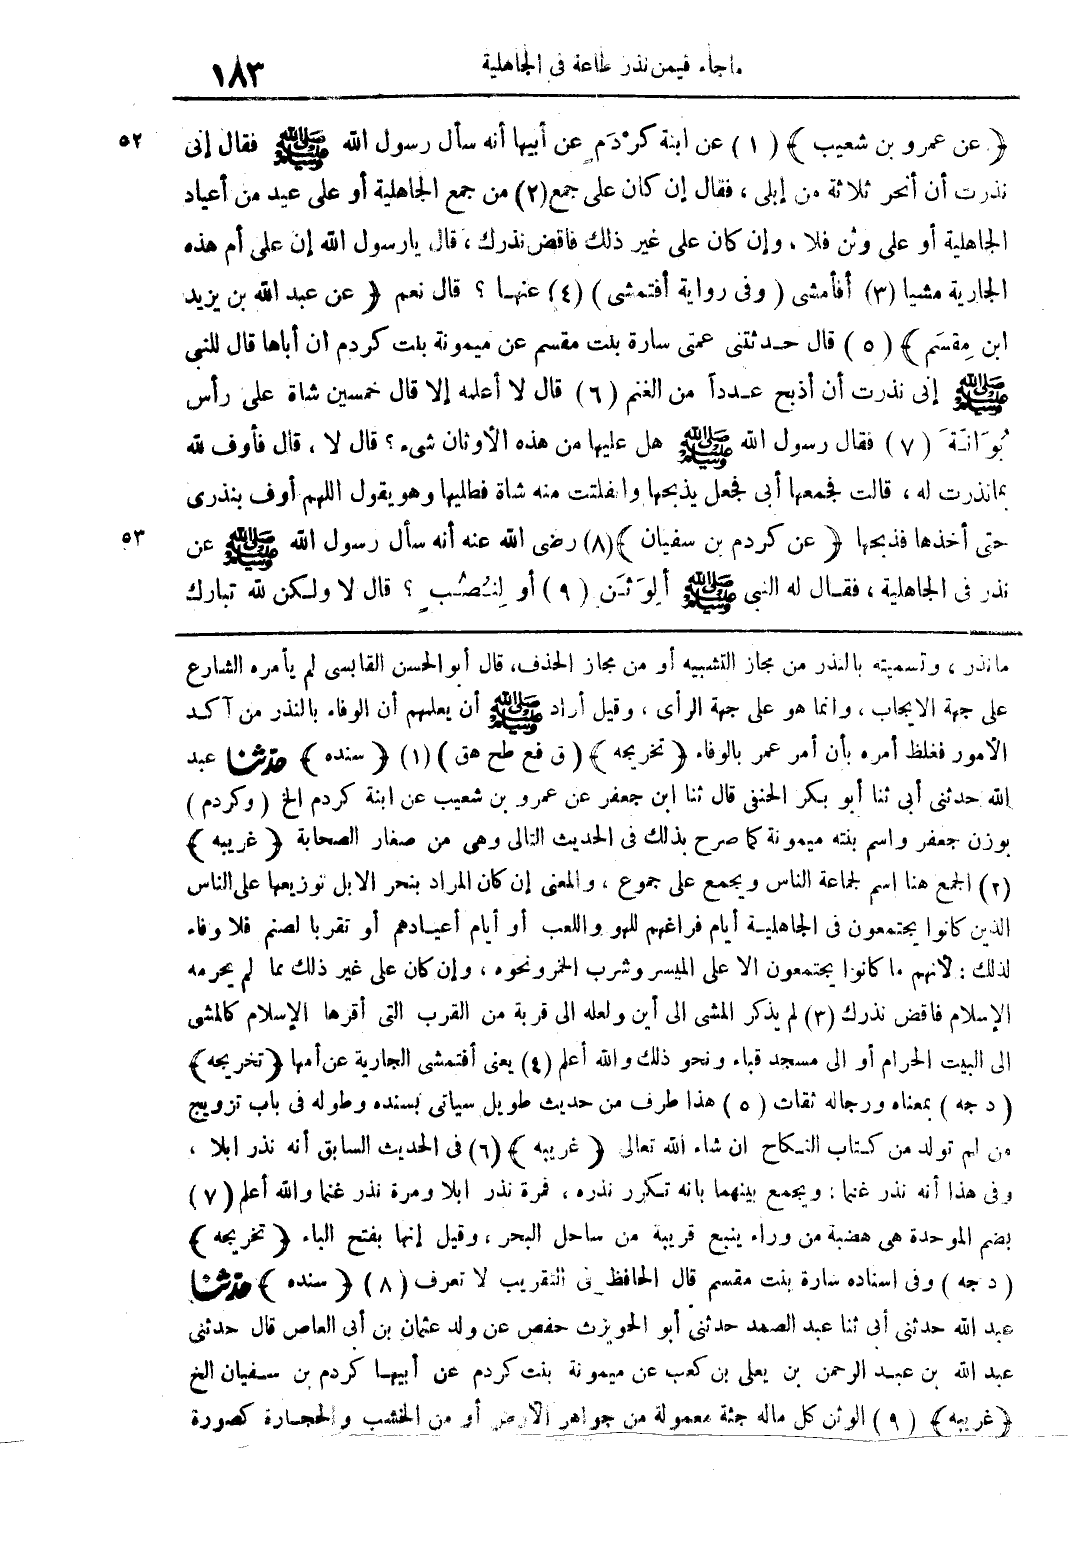 ماجاء فيمن نذر طاعة فى الجاهلية ١٨٣
﴿ عن عمرو بن شعيب ﴾ (١) عن ابنة كَرْدَمٍ عن أبيها أنه سأل رسول الله ﷺ فقال إنى ٥٢
نذرت أن أنحر ثلاثة من إبلى ، فقال إن كان على جمع (٢) من جمع الجاهلية أو على عيد من أعياد
الجاهلية أو على وثن فلا ، وإن كان على غير ذلك فاقض نذرك ، قال يارسول الله إن على أم هذه
الجارية مشيا (٣) أفأمشى ( وفى رواية أفتمشى ) (٤) عنهـا ؟ قال نعم ﴿ عن عبد الله بن يزيد
ابن مِقسَم ﴾ (٥) قال حـدثتنى عمتى سارة بنت مقسم عن ميمونة بنت كردم ان أباها قال للنبى
ﷺ إنى نذرت أن أذبح عـدداً من الغنم (٦) قال لا أعلمه إلا قال خمسين شاة على رأس
بُوَانَةَ (٧) فقال رسول الله ﷺ هل عليها من هذه الأوثان شىء ؟ قال لا ، قال فأوف لله
بمانذرت له ، قالت فجمعها أبى فجعل يذبحها وانفلتت منه شاة فطلبها وهو يقول اللهم أوف بنذرى
حتى أخذها فذبحها ﴿ عن كردم بن سفيان ﴾(٨) رضى الله عنه أنه سأل رسول الله ﷺ عن ٥٣
نذر فى الجاهلية ، فقـال له النبى ﷺ ألِوَثَنٍ (٩) أو لِنُصُبٍ ؟ قال لا ولـكن لله تبارك
مانذر ، وتسميته بالنذر من مجاز التشبيه أو من مجاز الحذف، قال أبو الحسن القابسى لم يأمره الشارع
على جهة الايجاب ، وانما هو على جهة الرأى ، وقيل أراد ﷺ أن يعلمهم أن الوفاء بالنذر من آكـد
الأمور فغلظ أمره بأن أمر عمر بالوفاء ﴿ تخريجه ﴾ ( ق فع طح هق ) (١) ﴿ سنده ﴾ حدثنا عبد
الله حدثنى أبى ثنا أبو بكر الحنفى قال ثنا ابن جعفر عن عمرو بن شعيب عن ابنة كردم الخ ( وكردم )
بوزن جعفر واسم بنته ميمونة كما صرح بذلك فى الحديث التالى وهى من صغار الصحابة ﴿ غريبه ﴾
(٢) الجمع هنا اسم لجماعة الناس ويجمع على جموع ، والمعنى إن كان المراد بنحر الابل توزيعها على الناس
الذين كانوا يجتمعون فى الجاهليـة أيام فراغهم للهو واللعب أو أيام أعيـادهم أو تقربا لصنم فلا وفاء
لذلك : لأنهم ما كانوا يجتمعون الا على الميسر وشرب الخر ونحوه ، وإن كان على غير ذلك مما لم يحرمه
الإسلام فاقض نذرك (٣) لم يذكر المشى الى أين ولعله الى قربة من القرب التى أقرها الإسلام كالمشى
الى البيت الحرام أو الى مسجد قباء ونحو ذلك والله أعلم (٤) يعنى أفتمشى الجارية عن أمها ﴿ تخريجه ﴾
( د جه ) بمعناه ورجاله ثقات (٥) هذا طرف من حديث طويل سيأتى بسنده وطوله فى باب تزويج
من لم تولد من كـتاب النـكاح ان شاء الله تعالى ﴿ غريبه ﴾ (٦) فى الحديث السابق أنه نذر ابلا ،
وفى هذا أنه نذر غنما : ويجمع بينهما بانه تـكرر نذره ، فمرة نذر ابلا ومرة نذر غنما والله أعلم (٧)
بضم الموحدة هى هضبة من وراء ينبع قريبة من ساحل البحر ، وقيل إنها بفتح الباء ﴿ تخريجه ﴾
( د جه ) وفى اسناده سارة بنت مقسم قال الحافظ فى التقريب لا تعرف (٨) ﴿ سنده ﴾ حدثنا
عبد الله حدثنى أبى ثنا عبد الصمد حدثنى أبو الحويرث حفص عن ولد عثمان بن أبى العاص قال حدثنى
عبد الله بن عبـد الرحمن بن يعلى بن كعب عن ميمونة بنت كردم عن أبيهـا كردم بن سـفيان الخ
﴿ غريبه ﴾ (٩) الوثن كل ماله جثة معمولة من جواهر الأرض أو من الخشب والحجـارة كصورة